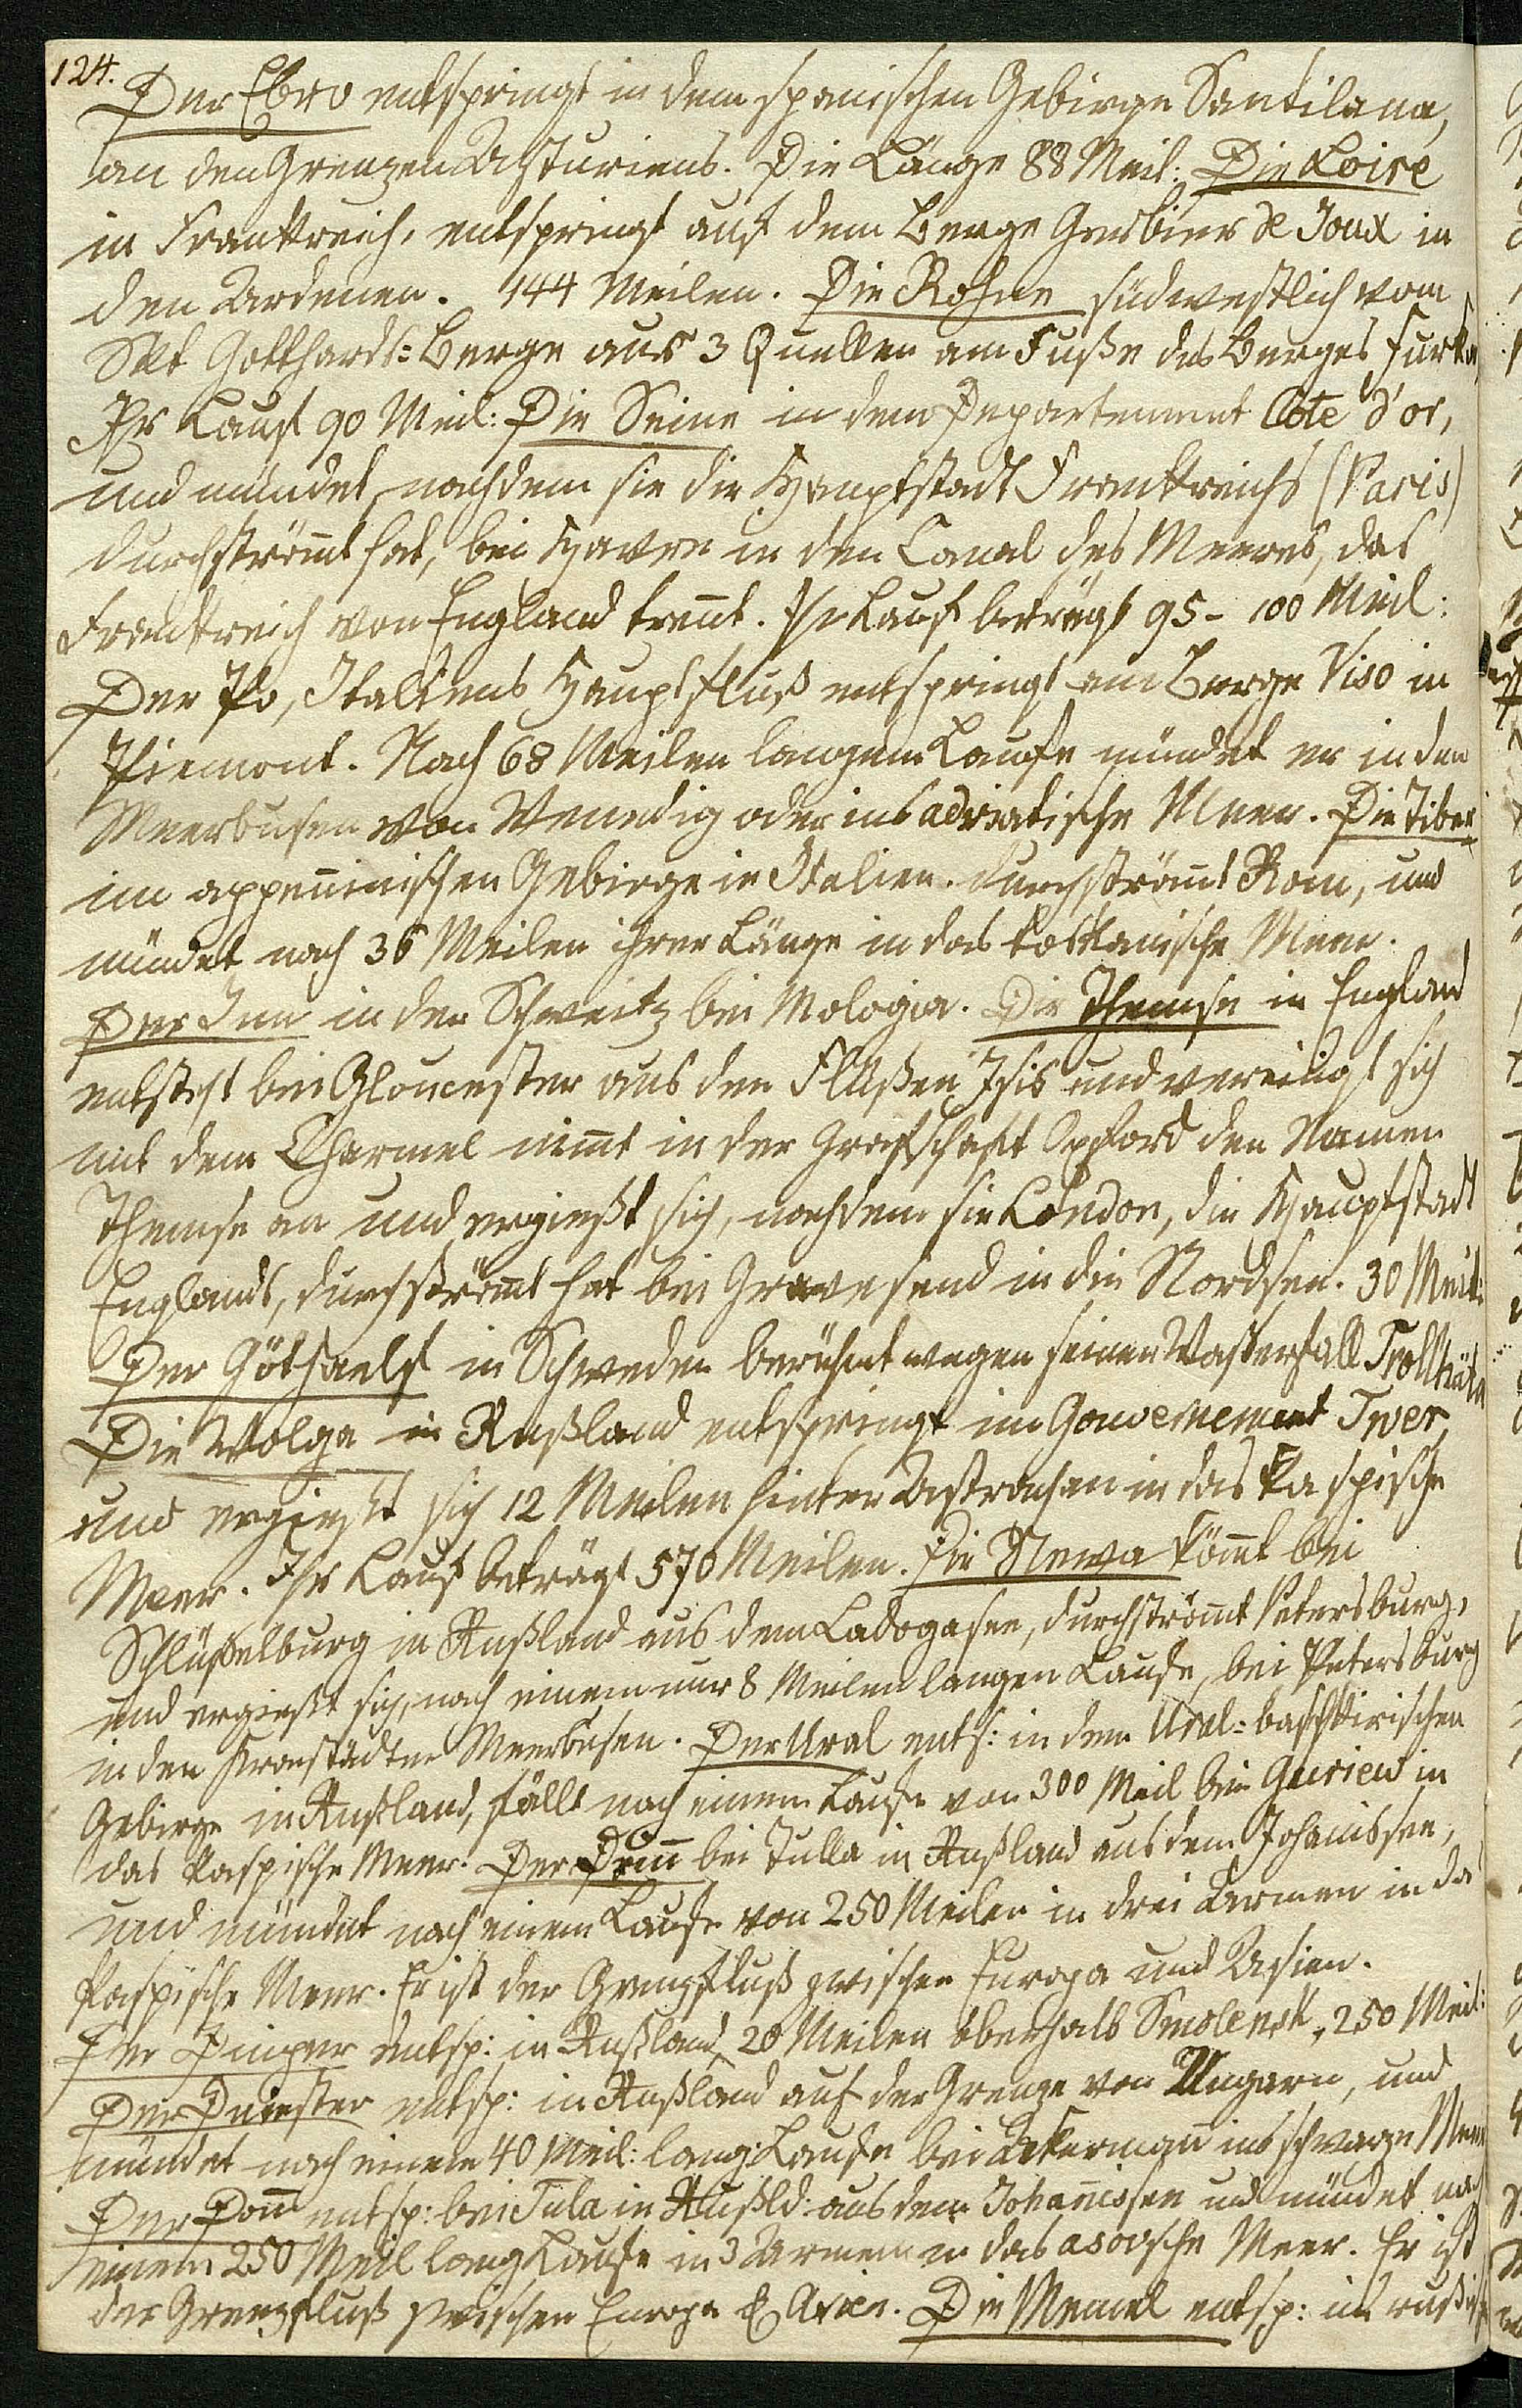 124.
Der Ebro entspringt in dem spanischen Gebirge Santilana,
an den Grenzen Asturiens. Die Länge 88 Meil: Die Loire
in Frankreich, entspringt auf dem Berge Gerbier de Joux in
den Ardenen. 144 Meilen. Die Rohne südwestlich vom
Skt Gotthards-Berge aus 3 Quellen am Fuße des Berges Furka
Ihr Lauf 90 Meil: Die Seine in dem Departement Côte d'or,
und mündet nachdem sie die Hauptstadt Frankreichs (Paris)
durchströmt hat, bei Havre in den Canal des Meeres, das
Frankreich von England trennt. Ihr Lauf beträgt 95 - 100 Meil:
Der Po, Italiens Hauptfluß entspringt am Berge Viso in
Piemont. Nach 68 Meilen langem Laufe mündet er in den
Meerbusen von Venedig oder ins adriatische Meer. Die Tiber
im appenninischen Gebirge in Italien. durchströmt Rom, und
mündet nach 36 Meilen ihrer Länge in das toskanische Meer.
Der Inn in der Schweitz bei Mologia. Die Themse in England
entsteht bei Gloucester aus den Flüßen Isis und vereinigt sich
mit dem Charmel nimt in der Grafschaft Oxford den Namen
Themse an und ergießt sich, nachdem sie London, die Hauptstadt
Englands, durchströmt hat bei Gravesend in die Nordsee. 30 Meil:
Der Göthaelf in Schweden berühmt wegen seinen Wasserfall Trollhäta
Die Wolga in Rußland entspringt im Gouvernement Twer
und ergießt sich 12 Meilen hinter Astrachan in das kaspische
Meer. Ihr Lauf beträgt 570 Meilen. Die Newa kömt bei
Schlüßelburg in Rußland aus dem Ladogasee, durchströmt Petersburg,
und ergießt sich, nach einem nur 8 Meilen langen Laufe, bei Petersburg
in den Kronstädter Meerbusen. Der Ural ents: in dem Ural-baschkirischen
Gebirge in Rußland, fällt nach einem Laufe von 300 Meil bei Guriew in
das kaspische Meer. Der bei Tulla in Rußland aus dem Johanissee,
und mündet nach einem Laufe von 250 Meilen in drei Armen in das
kaspische Meer. Er ist der Grenzfluß zwischen Europa und Asien.
Der Dnieper entsp: in Rußland, 20 Meilen oberhalb Smolensk, 250 Meil:
Der Dniester entsp: in Rußland auf der Grenze von Ungarn, und
mündet nach einem 40 Meil: lang: Laufe bei Ackermann ins schwarze Meer
Der Donn entsp: bei Tula in Rußld: aus dem Johanissee und mündet nach
einem 250 Meil lang Laufe in 3 Armen in das asovsche Meer. Er ist
der Grenzfluß zwischen Europa & Asien. Die Memel entsp: im rußisch